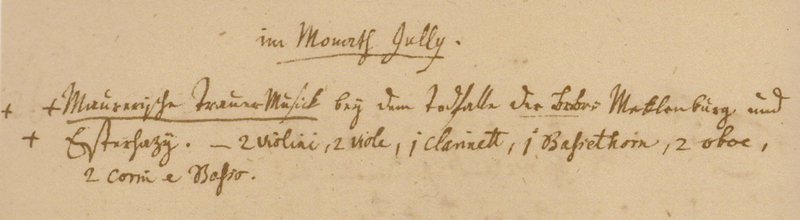 im Monath Jully.
+ + Maurerische Trauer Musick bey dem Todfalle der brbr: Meklenburg und
+ Esterhazÿ. — 2 violini, 2 viole, 1 clarinett, 1 Bassethorn, 2 oboe,
2 corni e Basso.